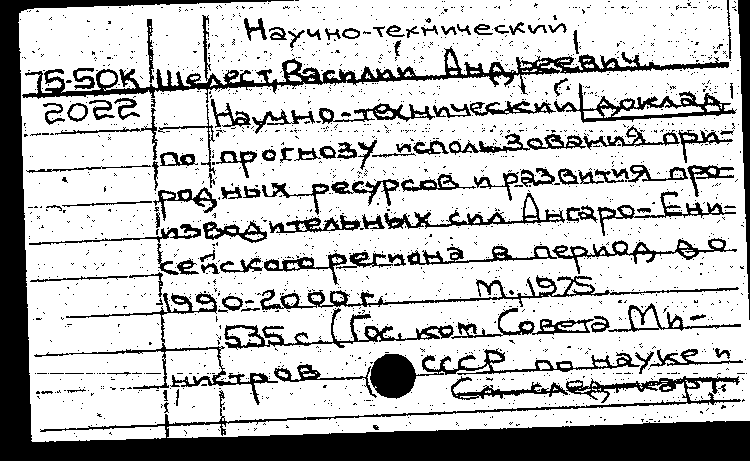 Научно-технический
75-50К Шелест, Василий Андреевич.
2022 Научно-технический доклад
по прогнозу использования при-
родных ресурсов и развития про-
изводительных сил Ангаро-Ени-
сейского региона в период до
1990-2000 г. М., 1975.
535 с. (Гос. ком. Совета Ми-
нистров СССР по науке и
См. след. карт.